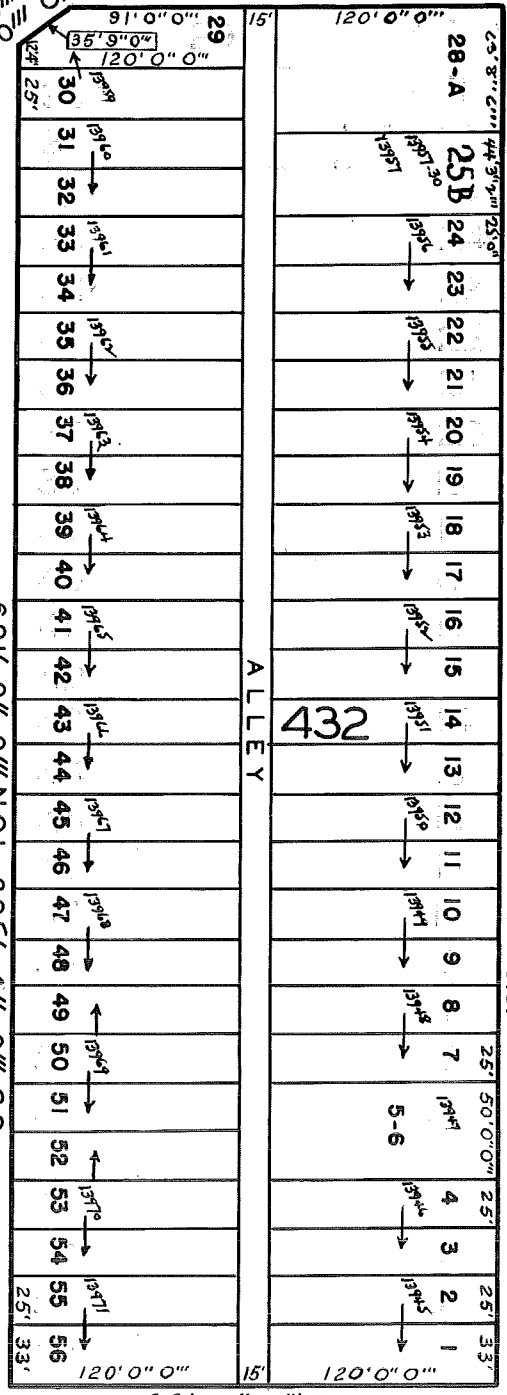 91' 0" 0'"
29
15'
120' 0" 0'"
35' 9" 0'"
120' 0" 0'"
28-A
63' 8" 6'"
25B
44' 3" 2'"
25' 0"
13957.30
13957
25'
30
13959
31
13960
32
33
13961
34
35
13962
36
37
13963
38
39
13964
40
41
13965
42
43
13966
44
45
13967
46
47
13968
48
49
50
13969
51
52
53
13970
54
55
13971
56
25'
33'
120' 0" 0'"
ALLEY
432
15'
24
13956
23
22
13955
21
20
13954
19
18
13953
17
16
13952
15
14
13951
13
12
13950
11
10
13949
9
8
13948
7
25'
13947
5-6
50' 0" 0'"
4
13946
25'
3
2
13945
25'
1
33'
120' 0" 0'"